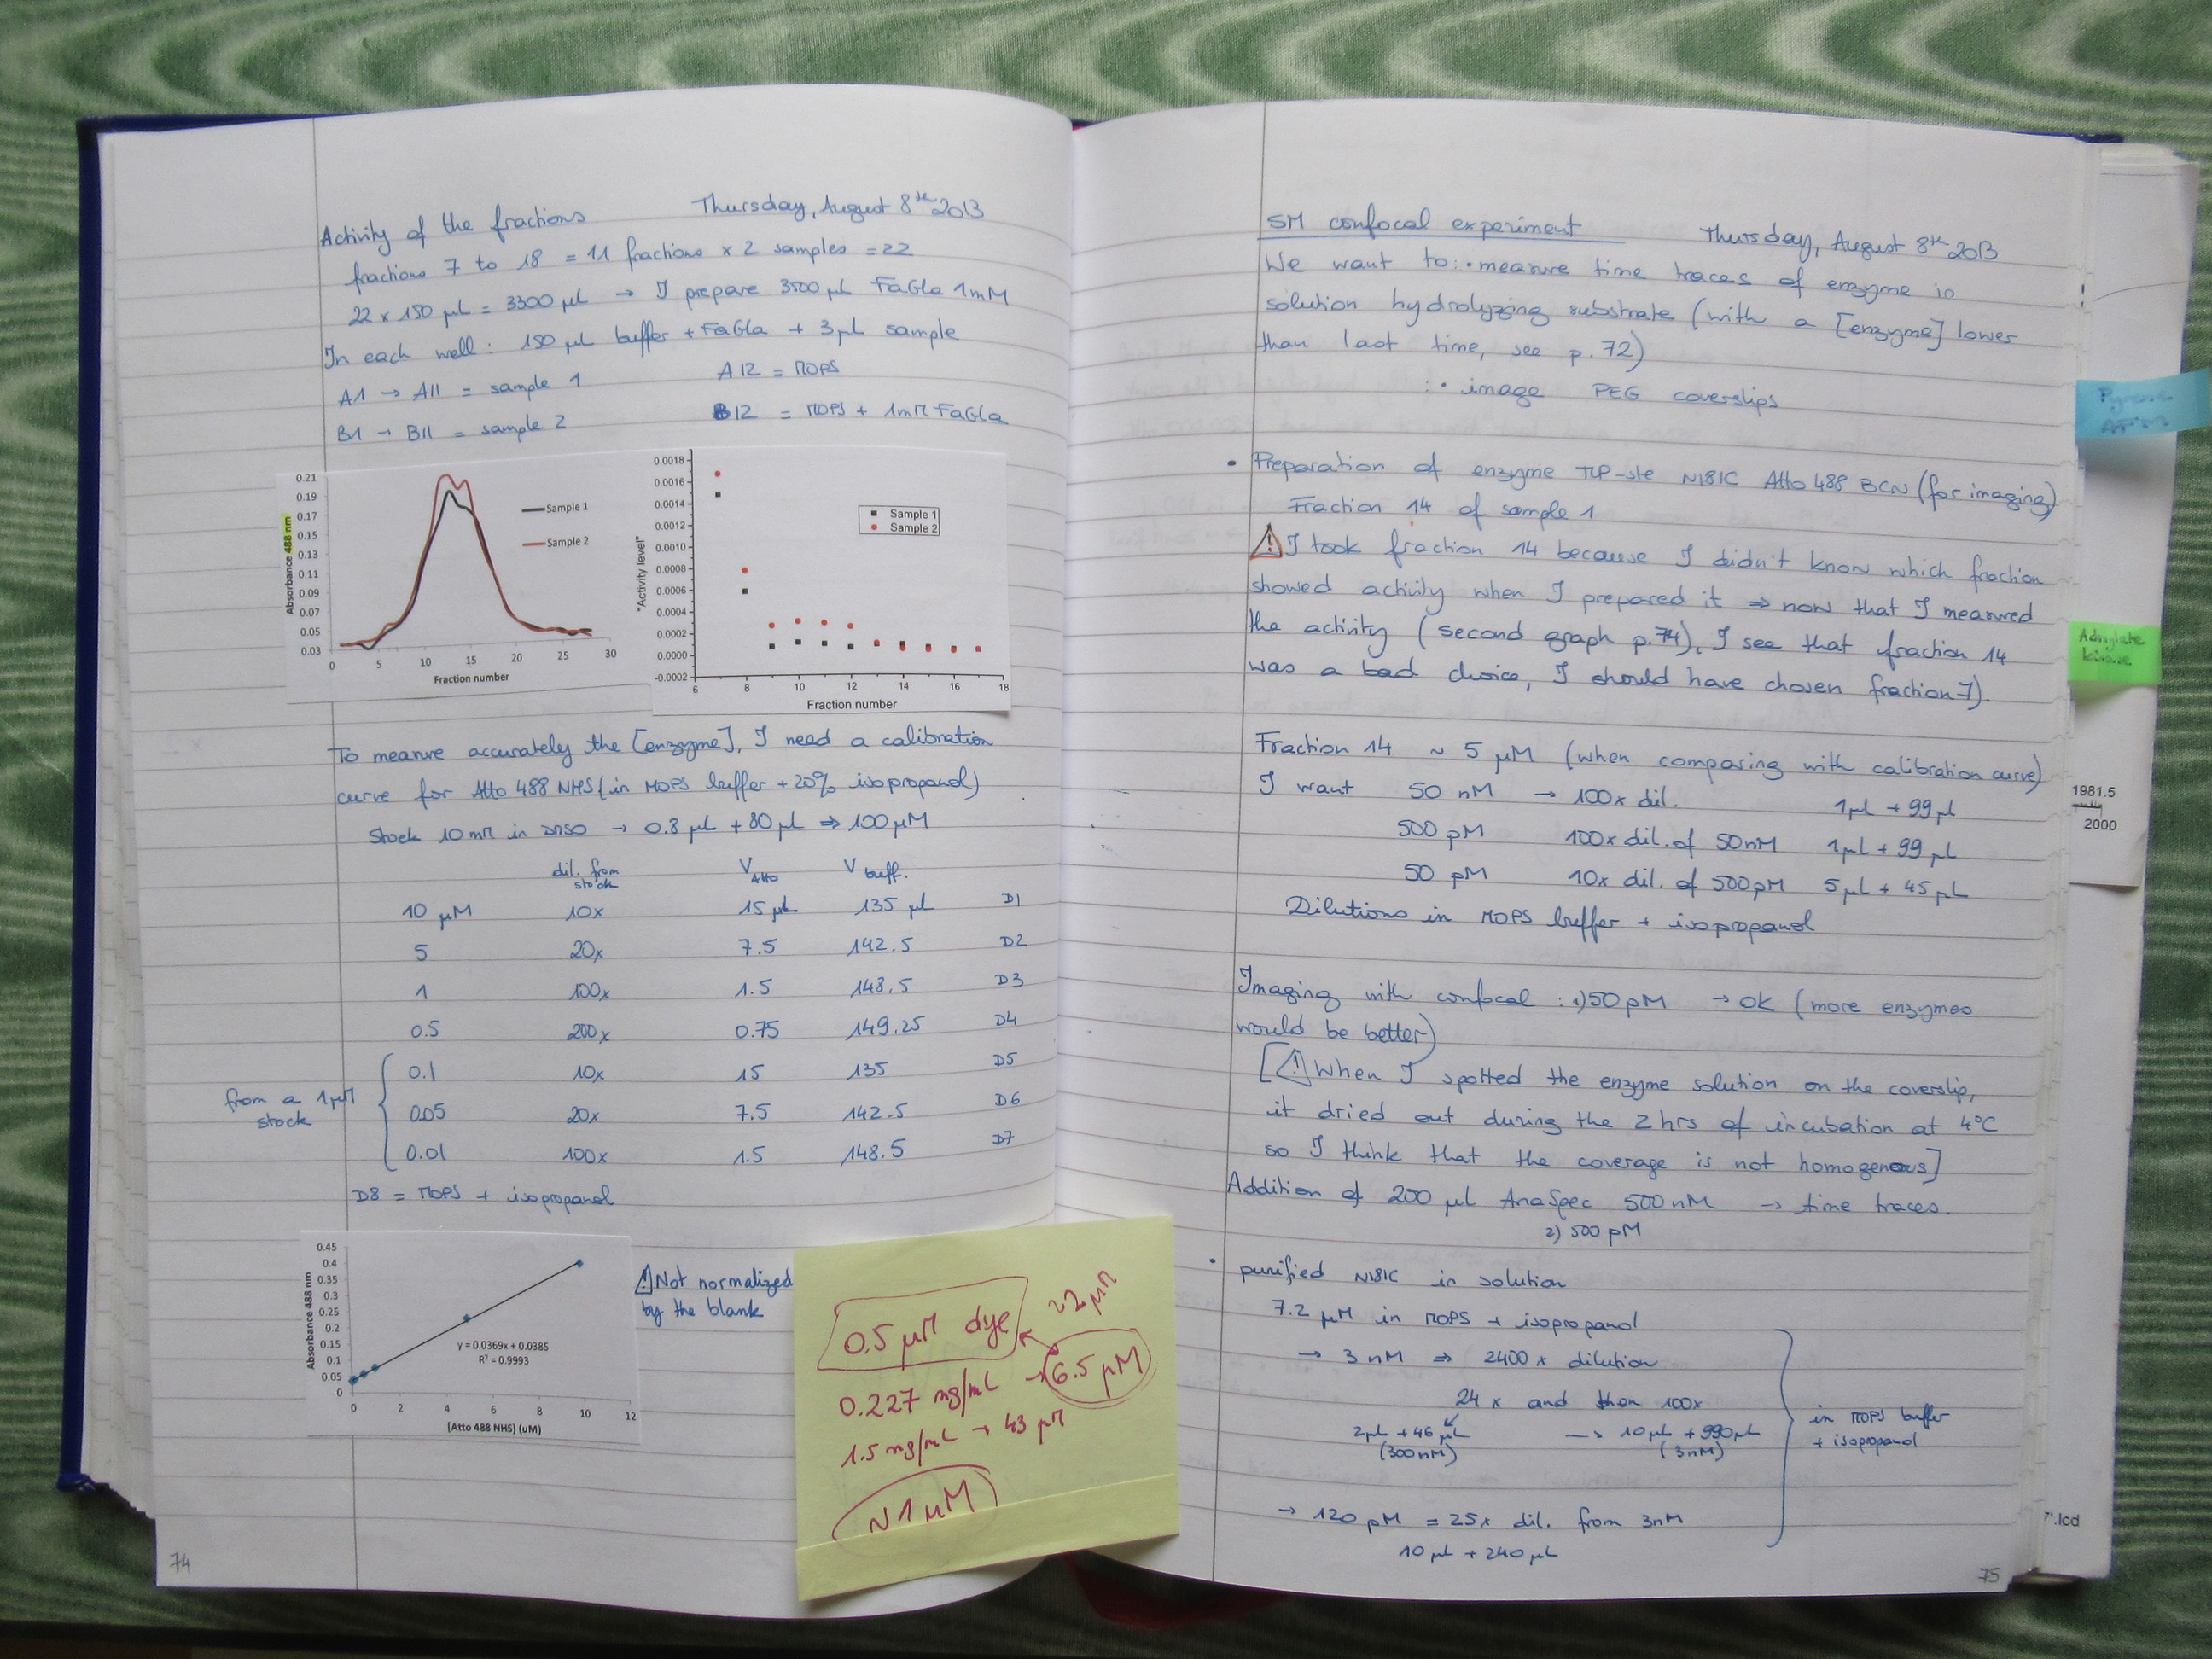 Activity of the fractions Thursday, August 8th 2013
fractions 7 to 18 = 11 fractions x 2 samples = 22
22 x 150 µL = 3300 µL → I prepare 3500 µL FaGla 1mM
In each well: 150 µL buffer + FaGla + 3 µL sample
A1 → A11 = sample 1 A12 = MOPS
B1 → B11 = sample 2 B12 = MOPS + 1mM FaGla
Absorbance 488 nm
0.21
0.19
0.17
0.15
0.13
0.11
0.09
0.07
0.05
0.03
0 5 10 15 20 25 30
Fraction number
Sample 1
Sample 2
"Activity level"
0.0018
0.0016
0.0014
0.0012
0.0010
0.0008
0.0006
0.0004
0.0002
0.0000
-0.0002
6 8 10 12 14 16 18
Fraction number
Sample 1
Sample 2
To measure accurately the [enzyme], I need a calibration
curve for Atto 488 NHS (in MOPS buffer + 20% isopropanol)
Stock 10 mM in DMSO → 0.8 µL + 80 µL ⇒ 100 µM
dil. from stock V Atto V buff.
10 µM 10x 15 µL 135 µL D1
5 20x 7.5 142.5 D2
1 100x 1.5 148.5 D3
0.5 200x 0.75 149.25 D4
from a 1 µM stock
0.1 10x 15 135 D5
0.05 20x 7.5 142.5 D6
0.01 100x 1.5 148.5 D7
D8 = MOPS + isopropanol
Absorbance 488 nm
0.45
0.4
0.35
0.3
0.25
0.2
0.15
0.1
0.05
0
0 2 4 6 8 10 12
[Atto 488 NHS] (uM)
y = 0.0369x + 0.0385
R² = 0.9993
⚠ Not normalized
by the blank
0.5 µM dye ~2 µM
0.227 mg/mL → 6.5 µM
1.5 mg/mL → 43 µM
~1 µM
74
SM confocal experiment Thursday, August 8th 2013
We want to: • measure time traces of enzyme in
solution hydrolyzing substrate (with a [enzyme] lower
than last time, see p. 72)
: • image PEG coverslips
• Preparation of enzyme TLP-ste N181C Atto 488 BCN (for imaging)
Fraction 14 of sample 1
⚠ I took fraction 14 because I didn't know which fraction
showed activity when I prepared it ⇒ now that I measured
the activity (second graph p. 74), I see that fraction 14
was a bad choice, I should have chosen fraction 7).
Fraction 14 ~ 5 µM (when comparing with calibration curve)
I want 50 nM → 100x dil. 1µL + 99 µL
500 pM 100x dil. of 50nM 1µL + 99 µL
50 pM 10x dil. of 500pM 5µL + 45 µL
Dilutions in MOPS buffer + isopropanol
Imaging with confocal : 1) 50 pM → OK (more enzymes
would be better)
[⚠ When I spotted the enzyme solution on the coverslip,
it dried out during the 2 hrs of incubation at 4°C
so I think that the coverage is not homogenous]
Addition of 200 µL AnaSpec 500 nM → time traces.
2) 500 pM
• purified N181C in solution
7.2 µM in MOPS + isopropanol
→ 3 nM ⇒ 2400 x dilution
24 x and then 100x
2µL + 46 µL → 10 µL + 990 µL
(300nM) (3 nM)
in MOPS buffer
+ isopropanol
→ 120 pM = 25x dil. from 3nM
10 µL + 240 µL
75
Adenylate
kinase
1981.5
2000
7'.lcd